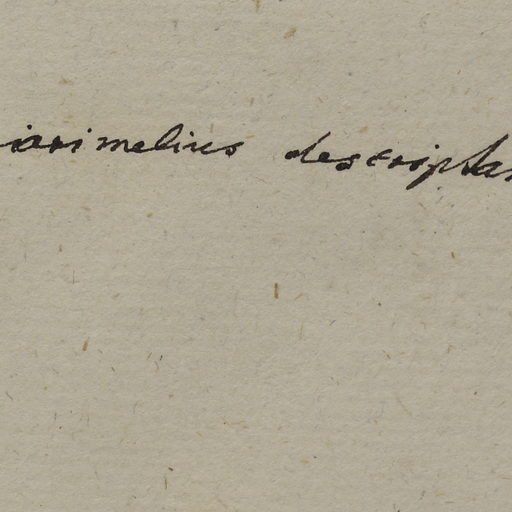 iarimelius descripta